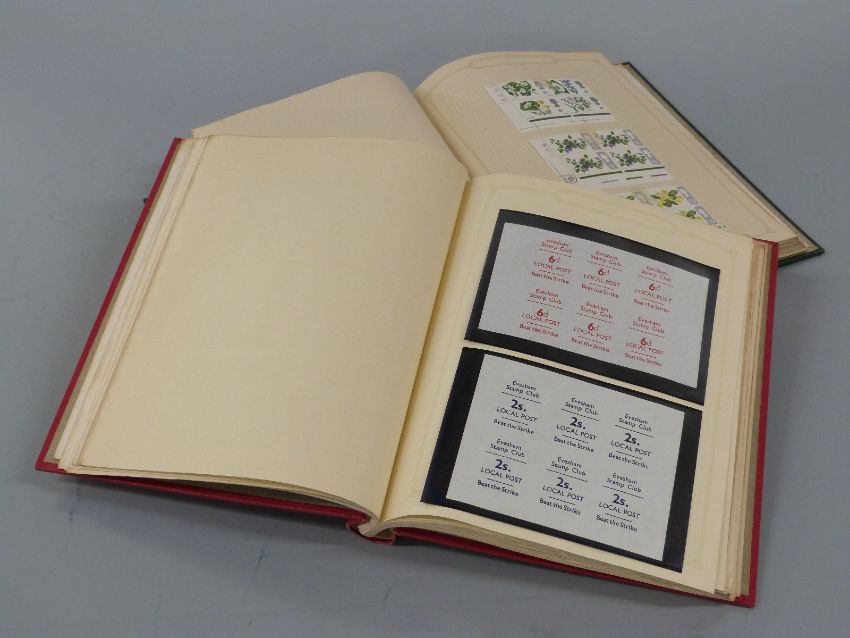 Evesham
Stamp Club
6d
LOCAL POST
Beat the Strike
Evesham
Stamp Club
6d
LOCAL POST
Beat the Strike
Evesham
Stamp Club
6d
LOCAL POST
Beat the Strike
Evesham
Stamp Club
6d
LOCAL POST
Beat the Strike
Evesham
Stamp Club
6d
LOCAL POST
Beat the Strike
Evesham
Stamp Club
6d
LOCAL POST
Beat the Strike
Evesham
Stamp Club
2s.
LOCAL POST
Beat the Strike
Evesham
Stamp Club
2s.
LOCAL POST
Beat the Strike
Evesham
Stamp Club
2s.
LOCAL POST
Beat the Strike
Evesham
Stamp Club
2s.
LOCAL POST
Beat the Strike
Evesham
Stamp Club
2s.
LOCAL POST
Beat the Strike
Evesham
Stamp Club
2s.
LOCAL POST
Beat the Strike